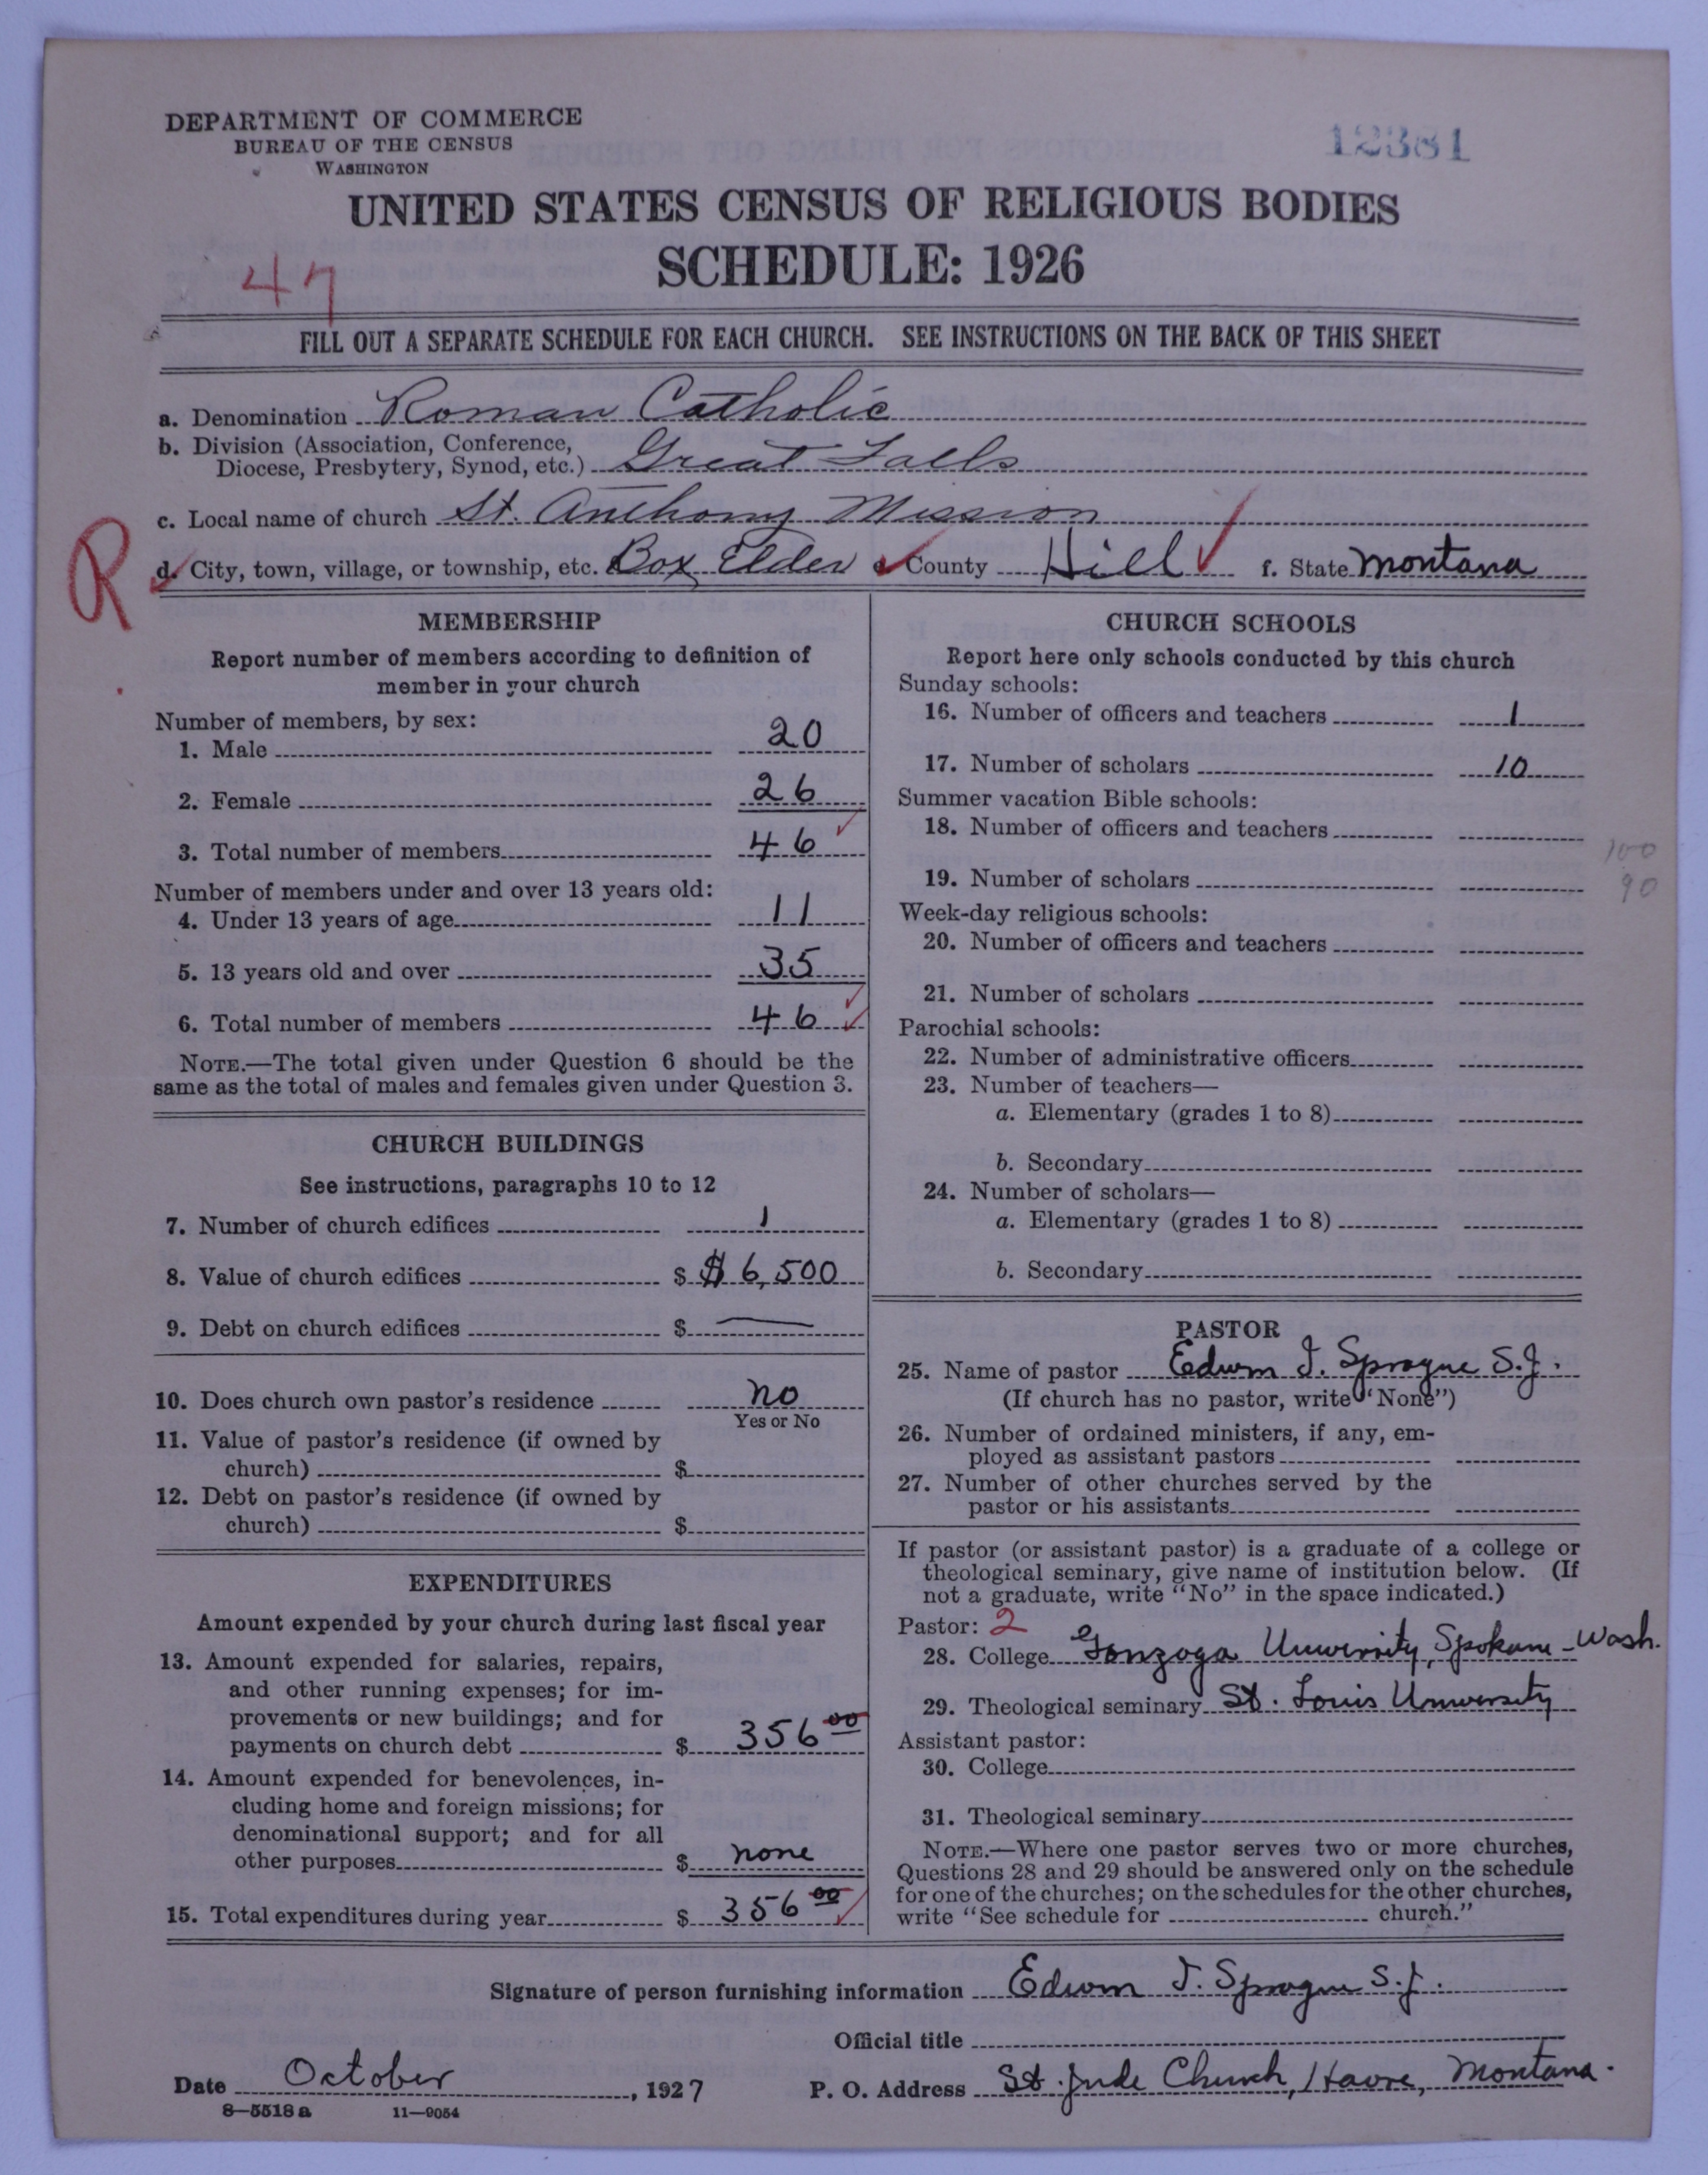 DEPARTMENT OF COMMERCE
BUREAU OF THE CENSUS
WASHINGTON
12381
UNITED STATES CENSUS OF RELIGIOUS BODIES
SCHEDULE: 1926
47
FILL OUT A SEPARATE SCHEDULE FOR EACH CHURCH. SEE INSTRUCTIONS ON THE BACK OF THIS SHEET
a. Denomination Roman Catholic
b. Division (Association, Conference,
Diocese, Presbytery, Synod, etc.) Great Falls
c. Local name of church St. Anthony Mission
R
d. City, town, village, or township, etc. Box Elder e. County Hill f. State Montana
MEMBERSHIP
Report number of members according to definition of
member in your church
Number of members, by sex:
1. Male 20
2. Female 26
3. Total number of members 46
Number of members under and over 13 years old:
4. Under 13 years of age 11
5. 13 years old and over 35
6. Total number of members 46
NOTE.—The total given under Question 6 should be the
same as the total of males and females given under Question 3.
CHURCH BUILDINGS
See instructions, paragraphs 10 to 12
7. Number of church edifices 1
8. Value of church edifices $ $ 6,500
9. Debt on church edifices $ —
10. Does church own pastor's residence no
Yes or No
11. Value of pastor's residence (if owned by
church) $
12. Debt on pastor's residence (if owned by
church) $
EXPENDITURES
Amount expended by your church during last fiscal year
13. Amount expended for salaries, repairs,
and other running expenses; for im-
provements or new buildings; and for
payments on church debt $ 356 00
14. Amount expended for benevolences, in-
cluding home and foreign missions; for
denominational support; and for all
other purposes $ none
15. Total expenditures during year $ 356 00
CHURCH SCHOOLS
Report here only schools conducted by this church
Sunday schools:
16. Number of officers and teachers 1
17. Number of scholars 10
Summer vacation Bible schools:
18. Number of officers and teachers
100
19. Number of scholars
90
Week-day religious schools:
20. Number of officers and teachers
21. Number of scholars
Parochial schools:
22. Number of administrative officers
23. Number of teachers—
a. Elementary (grades 1 to 8)
b. Secondary
24. Number of scholars—
a. Elementary (grades 1 to 8)
b. Secondary
PASTOR
25. Name of pastor Edwin J. Sprague S.J.
(If church has no pastor, write "None")
26. Number of ordained ministers, if any, em-
ployed as assistant pastors
27. Number of other churches served by the
pastor or his assistants
If pastor (or assistant pastor) is a graduate of a college or
theological seminary, give name of institution below. (If
not a graduate, write "No" in the space indicated.)
Pastor: 2
28. College Gonzaga University, Spokane - Wash.
29. Theological seminary St. Louis University
Assistant pastor:
30. College
31. Theological seminary
NOTE.—Where one pastor serves two or more churches,
Questions 28 and 29 should be answered only on the schedule
for one of the churches; on the schedules for the other churches,
write "See schedule for church."
Signature of person furnishing information Edwin J. Sprague S.J.
Official title
Date October, 1927 P. O. Address St. Jude Church, Havre, Montana.
8—5518a 11—9054